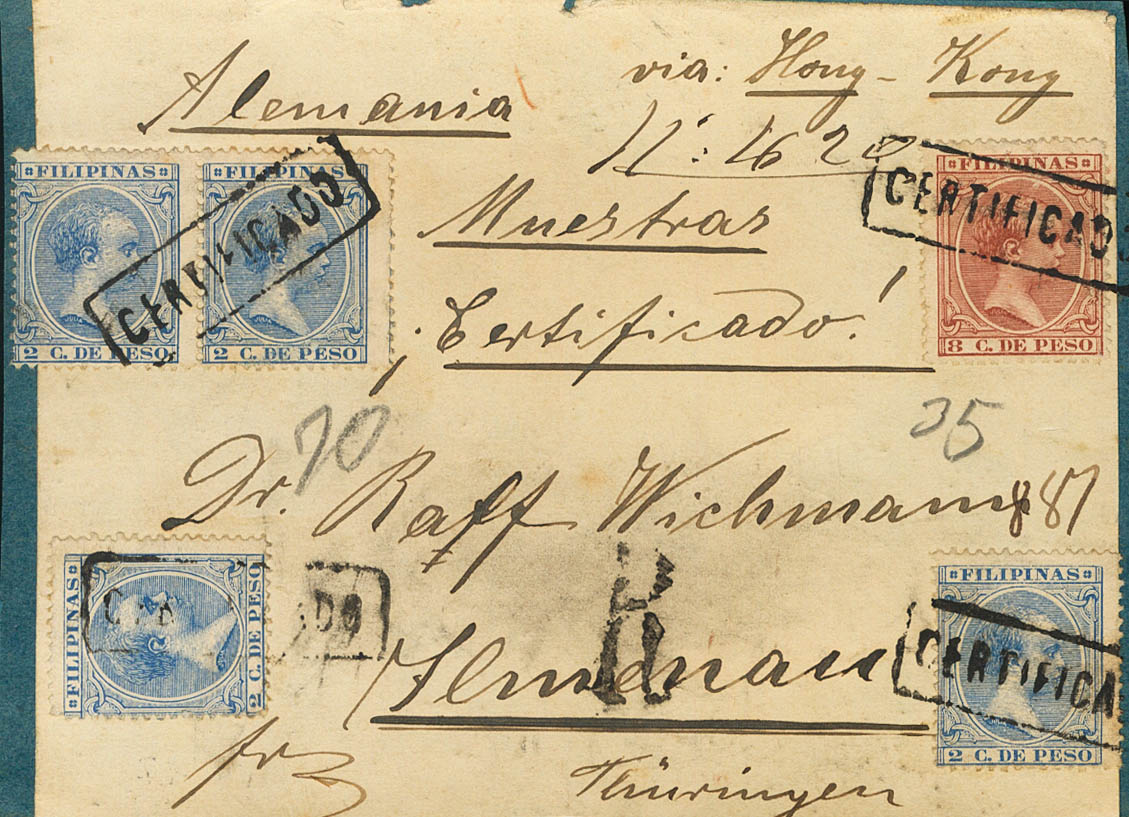 Alemania
via: Hong-Kong
Nº: 1620
Muestras
¡Certificado!
FILIPINAS
2 C. DE PESO
FILIPINAS
2 C. DE PESO
CERTIFICADO
FILIPINAS
8 C. DE PESO
CERTIFICADO
70
35
Dr. Raff Wichmann
887
FILIPINAS
2 C. DE PESO
R
Ilmenau
FILIPINAS
2 C. DE PESO
CERTIFICA
Thüringen